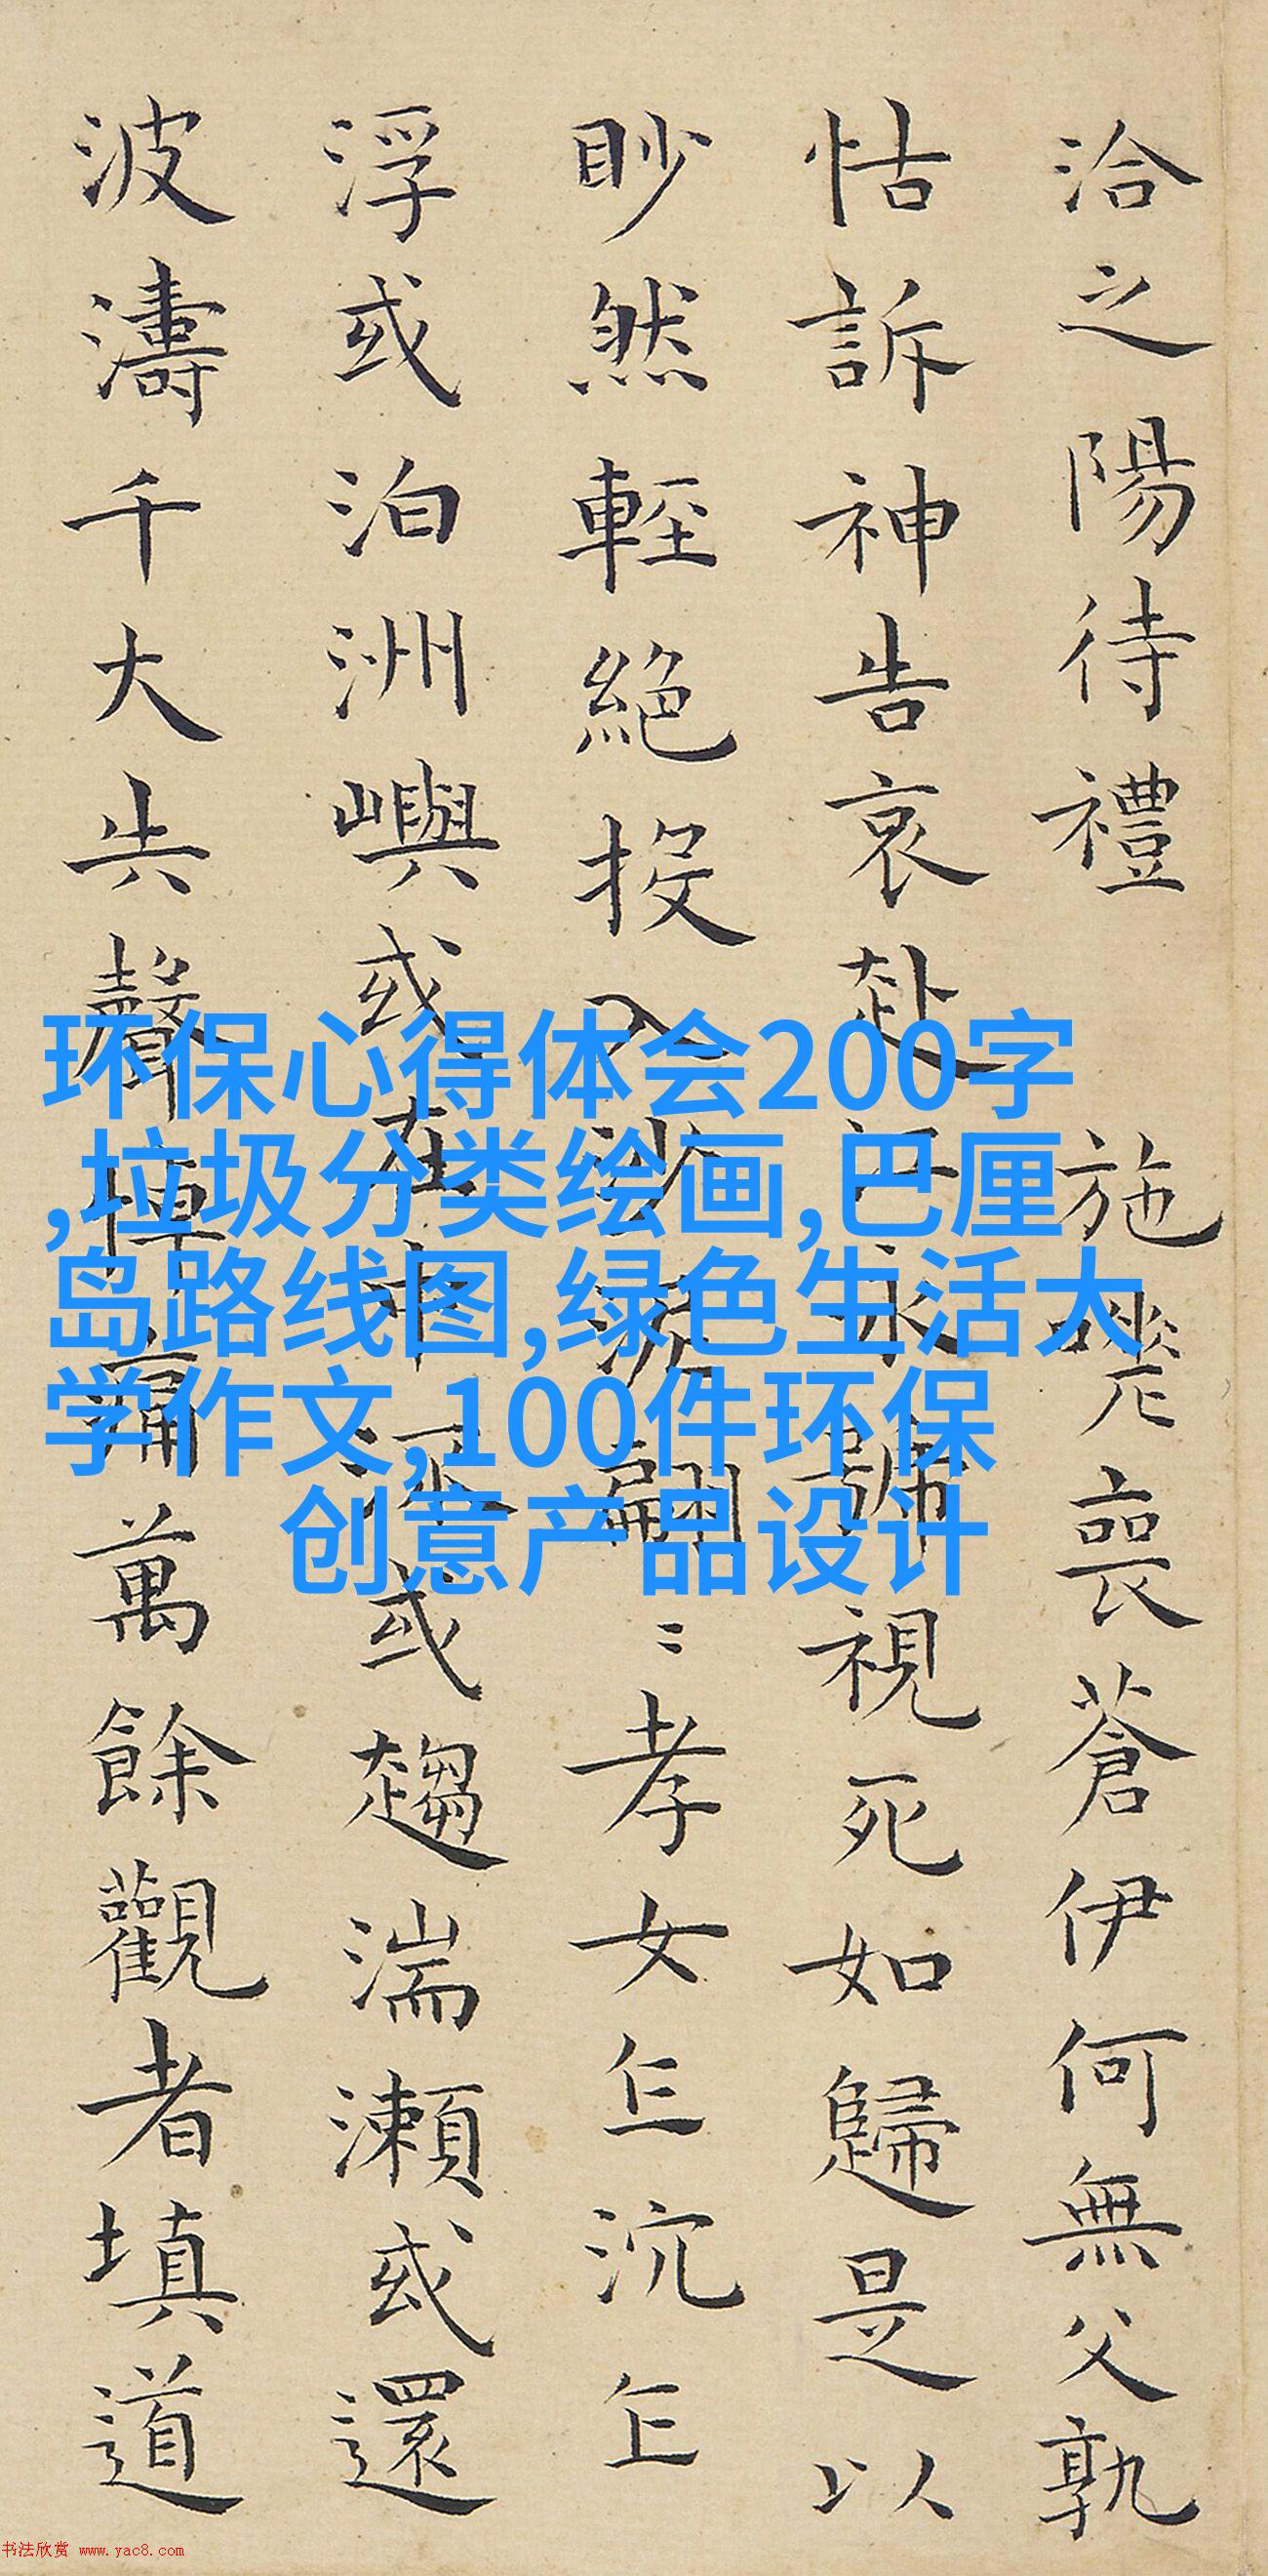 洽之陽待禮 施喪蒼伊何無父孰
怙訴神告哀赴江永號視死如歸是以
眇然輕絕投入沙泥翩〻孝女乍沉乍
浮或泊洲嶼或在中流或趨湍瀨或還
波濤千大失聲悼痛萬餘觀者填道
环保心得体会200字
,垃圾分类绘画,巴厘
岛路线图,绿色生活大
学作文,100件环保
创意产品设计
书法欣赏 www.yac8.com